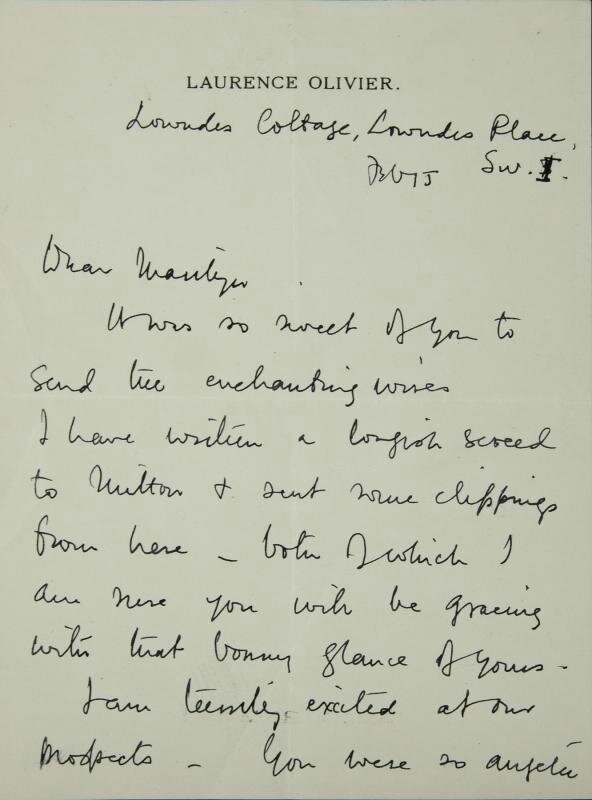 LAURENCE OLIVIER.
Lowndes Cottage, Lowndes Place,
SW.1.
Feb 15
Dear Marilyn
It was so sweet of you to
send the enchanting wires
I have written a longish screed
to Milton & sent some clippings
from here – both of which I
am sure you will be gracing
with that bonny glance of yours –
I am terribly excited at our
prospects – You were so angelic